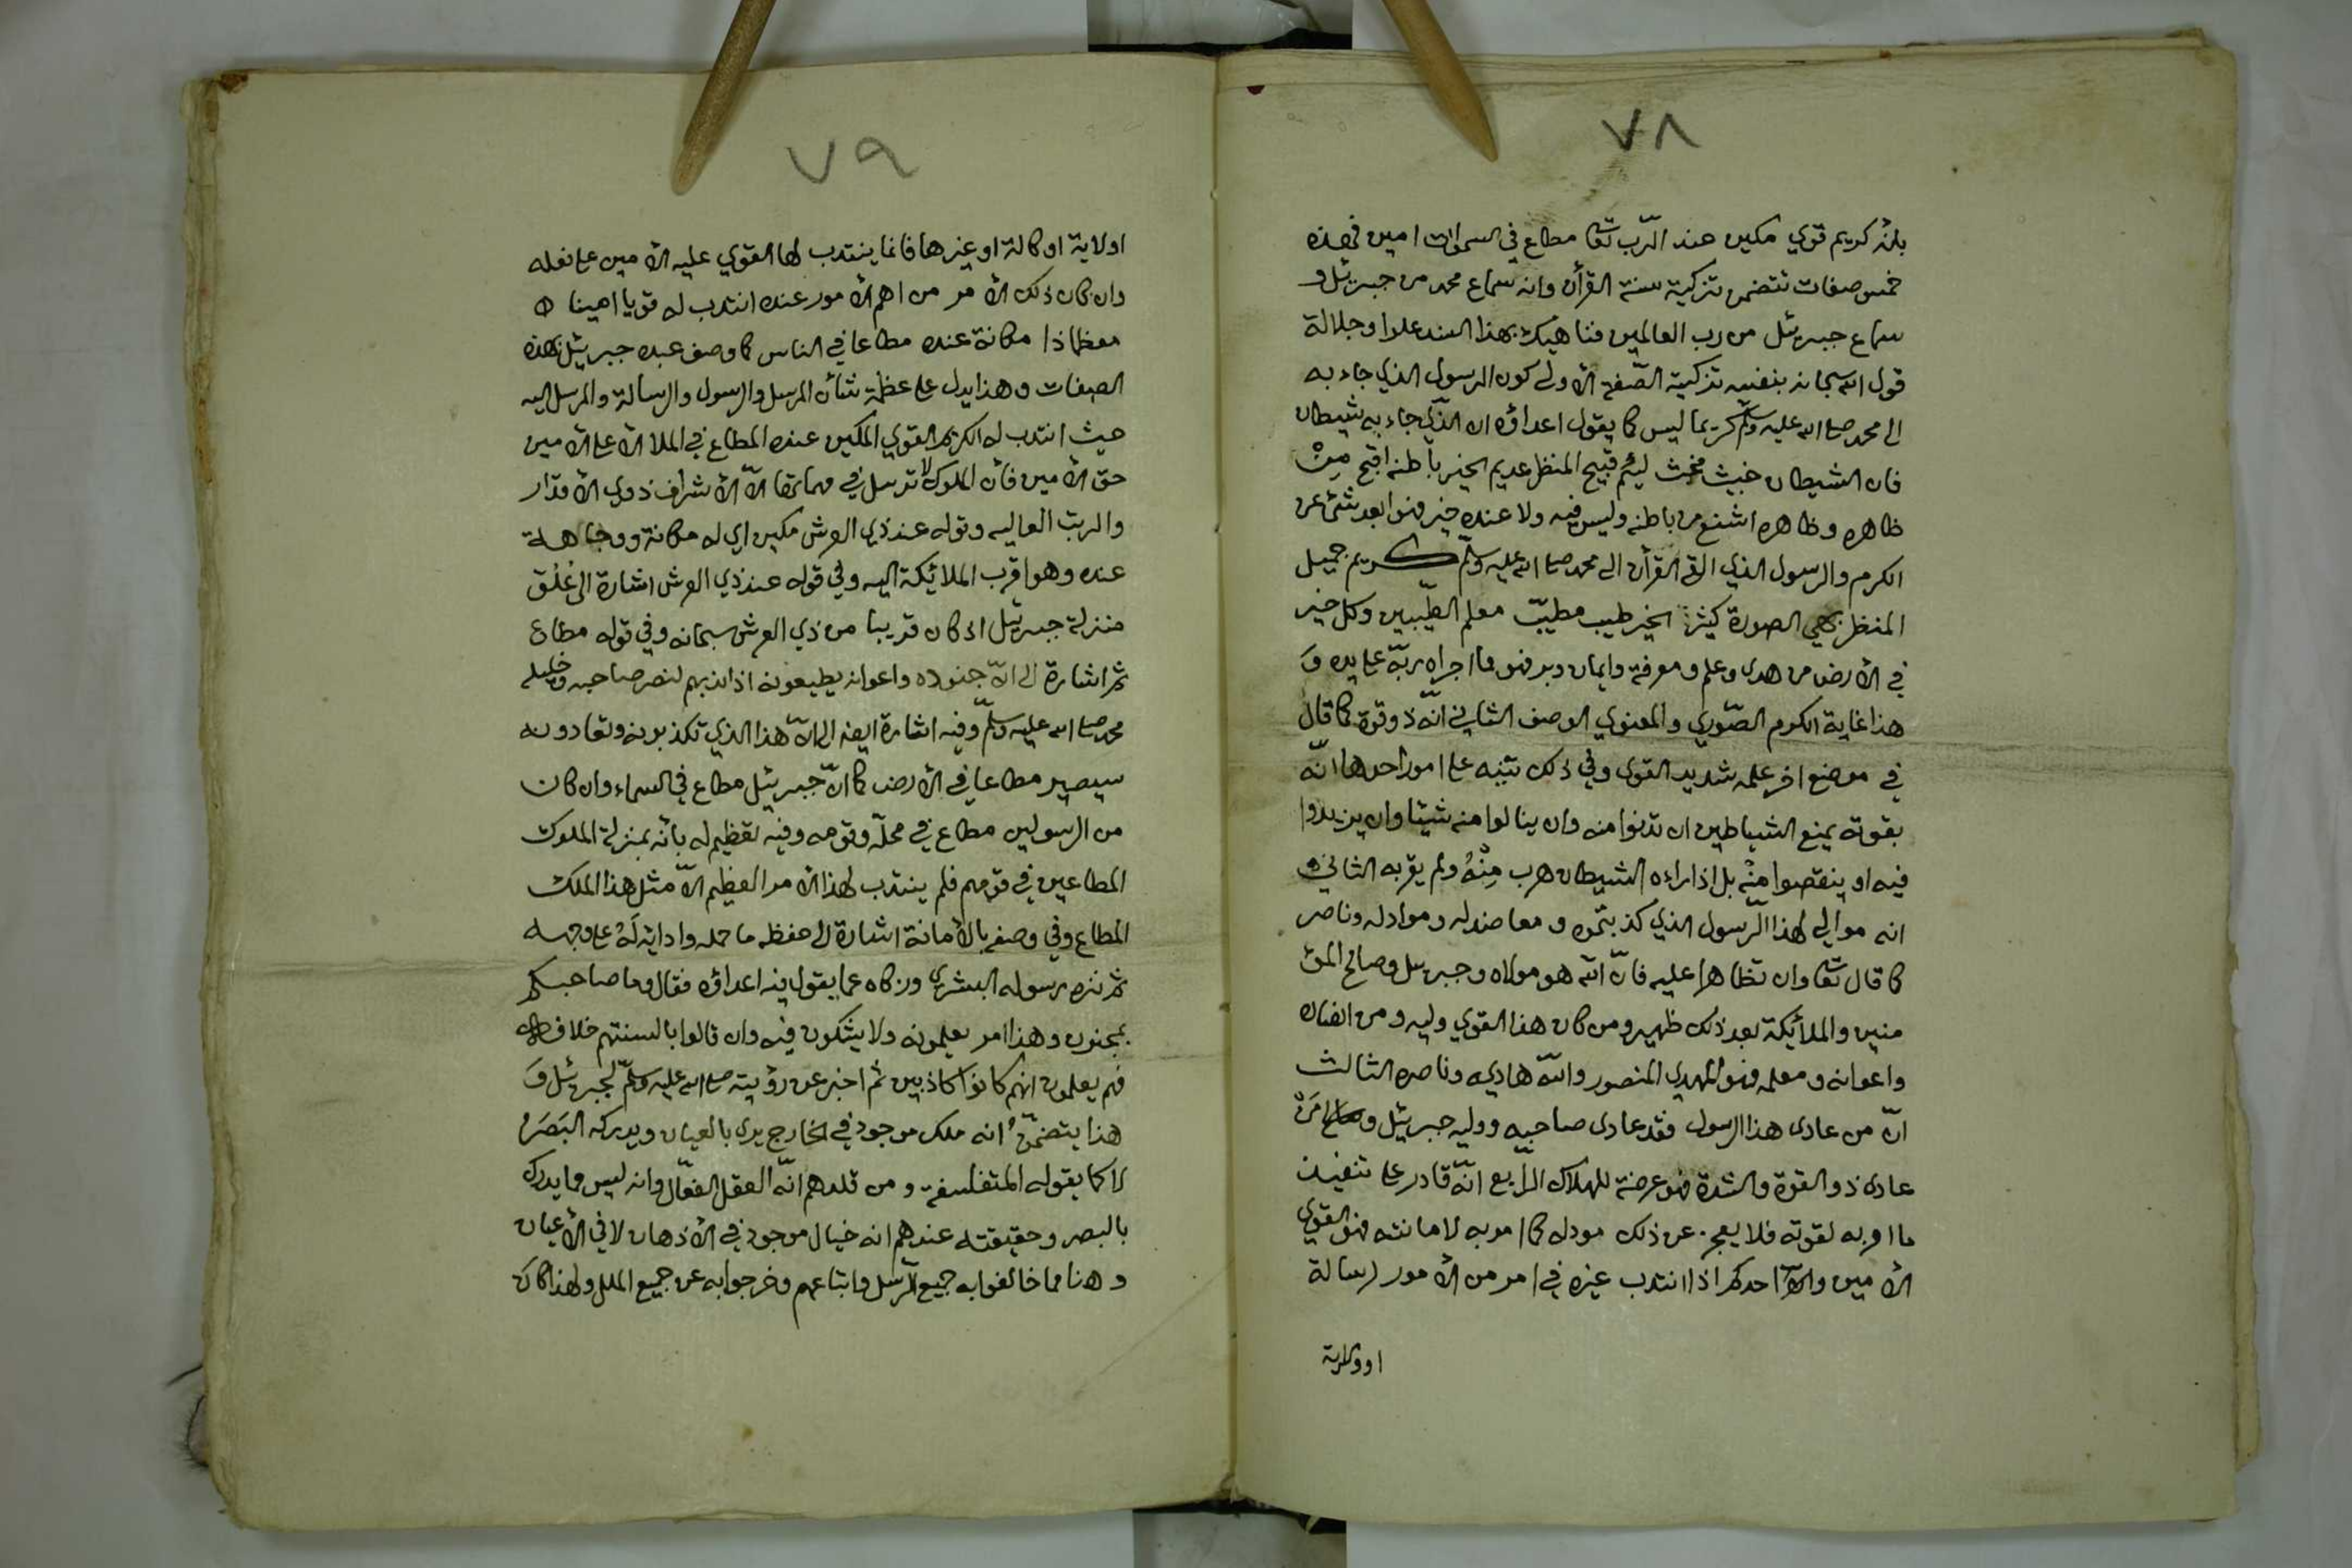 ٧٨
بأنه كريم قوي مكين عند الرّب تعا مطاع في السموات امين فهذه
خمس صفات تتضمن تزكية سنة القرأن وانه سماع محمد من جبرئل و
سماع جبرئل من رب العالمين فناهيك بهذا السند علوا وجلالة
قول الله سبحانه بنفسه تزكية الصّفة الأولى كون الرسول الذي جاء به
الى محمد صلى الله عليه وسلّم كريما ليس كما يقول اعداؤه ان الذّي جاء به شيطان
فان الشيطان خبيث مخبث ليئم قبيح المنظر عديم الخير باطنه اقبح مِنْ
ظاهره وظاهره اشنع من باطنه وليس فيه ولا عنده خير فهو ابعد شئ عن
الكرم والرسول الذي القى القرأن الى محمد صلى الله عليه وسلّم كريم جميل
المنظر بهي الصورة كثير الخير طيب مطيّب معلم الطّيبين وكل خير
في الأرض من هدى وعلم ومعرفة وايمان وبر فهو مما اجراه ربّه على يده وَ
هذا غاية الكرم الصّوري والمعنوي الوصف الثاني انّه ذو قوة كما قال
في موضع اخر علمه شديد القوى وفي ذلك تنبه على امور احدها انّه
بقوته يمنع الشياطين ان تدنوا منه وان ينالوا منه شيئا وان يزيدوا
فيه او ينقصوا منْه بل اذا راءه الشيطان هرب مِنْهُ ولم يقربه الثاني
انه موالي لهذا الّرسول الذي كذبتموه ومعاضد له وموادله وناصر
كما قال تعا وان تظاهرا عليه فانّ الله هو مولاه وجبريل وصالح المؤ
منين والملأئكة بعد ذلك ظهير ومن كان هذا القوي وليه ومن انصاره
واعوانه ومعلمه فهو المهدي المنصور والله هاديه وناصره الثالث
انّ من عادى هذا الرسول فقد عادى صاحبه ووليه جبرئيل و مَنْ
عادى ذو القوة والشدة فهو عرضة للهلاك الرّابع انّه قادر على تنفيذ
ما امر به لقوته فلا يعجز عن ذلك مودله كما امر به لامانته فهو القوي
الأمين واحدكم اذا انتدب غيره في امر من الأمور لرسالة
او ولاية
٧٩
اولاية او كالة او غيرها فانما ينتدب لها القوي عليه الأمين على فعله
وان كان ذلك الأمر من اهم الأمور عنده انتدب له قويا امينا
معظما ذا مكانة عنده مطاعا في الناس كما وصف عبده جبريئل بهذه
الصفات وهذا يدل على عظمة شأن المرسل والرسول والرسالة والمرسل اليه
حيث انتدب له الكريم القوي المكين عنده المطاع في الملا الأعلى الأمين
حق الأمين فأن الملوك لا ترسل في مهماتها الّا الأشراف ذوي الأقدار
والرتب العاليه وقوله عند ذي العرش مكين اي له مكانة ووجاهة
عنده وهو اقرب الملائكة اليه وفي قوله عند ذي العرش اشارة الى عُلُوّ
منزلة جبرئيل اذ كان قريبا من ذي العرش سبحانه وفي قوله مطاع
ثم اشارة الى انّ جنوده واعوانه يطيعونه اذا ندبهم لنصر صاحبه وخليله
محمد صلى الله عليه وسلّم وفيه اشارة ايضا الى انّ هذا الذي تكذبونه وتعادونه
سيصير مطاعا في الأرض كما انّ جبريئل مطاع في السماء وان كان
من الرسولين مطاع في محلّه وقومه وفيه تعظيم له بأنه بمنزلة الملوك
المطاعين في قومهم فلم ينتدب لهذا الأمر العظيم الّا مثل هذا الملك
المطاع وفي وصفه بالأمانة اشارة الى حفظه ما حمله وادايه لَهُ على وجهه
ثم نزه رسوله البشري وزكاه عما يقول فيه اعداؤه فقال وما صاحبكم
بمجنون وهذا امر يعلمونه ولا يشكون فيه وان قالوا بالسنتهم خلافه
فهم يعلمون انهم كانوا كاذبين ثم اخبر عن رؤيته صلى الله عليه وسلّم لجبرئل وَ
هذا يتضمّنُ انه ملك موجود في الخارج يرى بالعيان ويدركه البَصَرُ
لا كما يقوله المتفلسفة ومن قلدهم انّه العقل الفعّال وانه ليس مما يدرك
بالبصر وحقيقته عندهم انه خيال موجود في الأذهان لا في الأعيان
وهنا مما خالفوا به جميع الرّسل واتباعهم وخرجوا به عن جميع الملل ولهذا كان